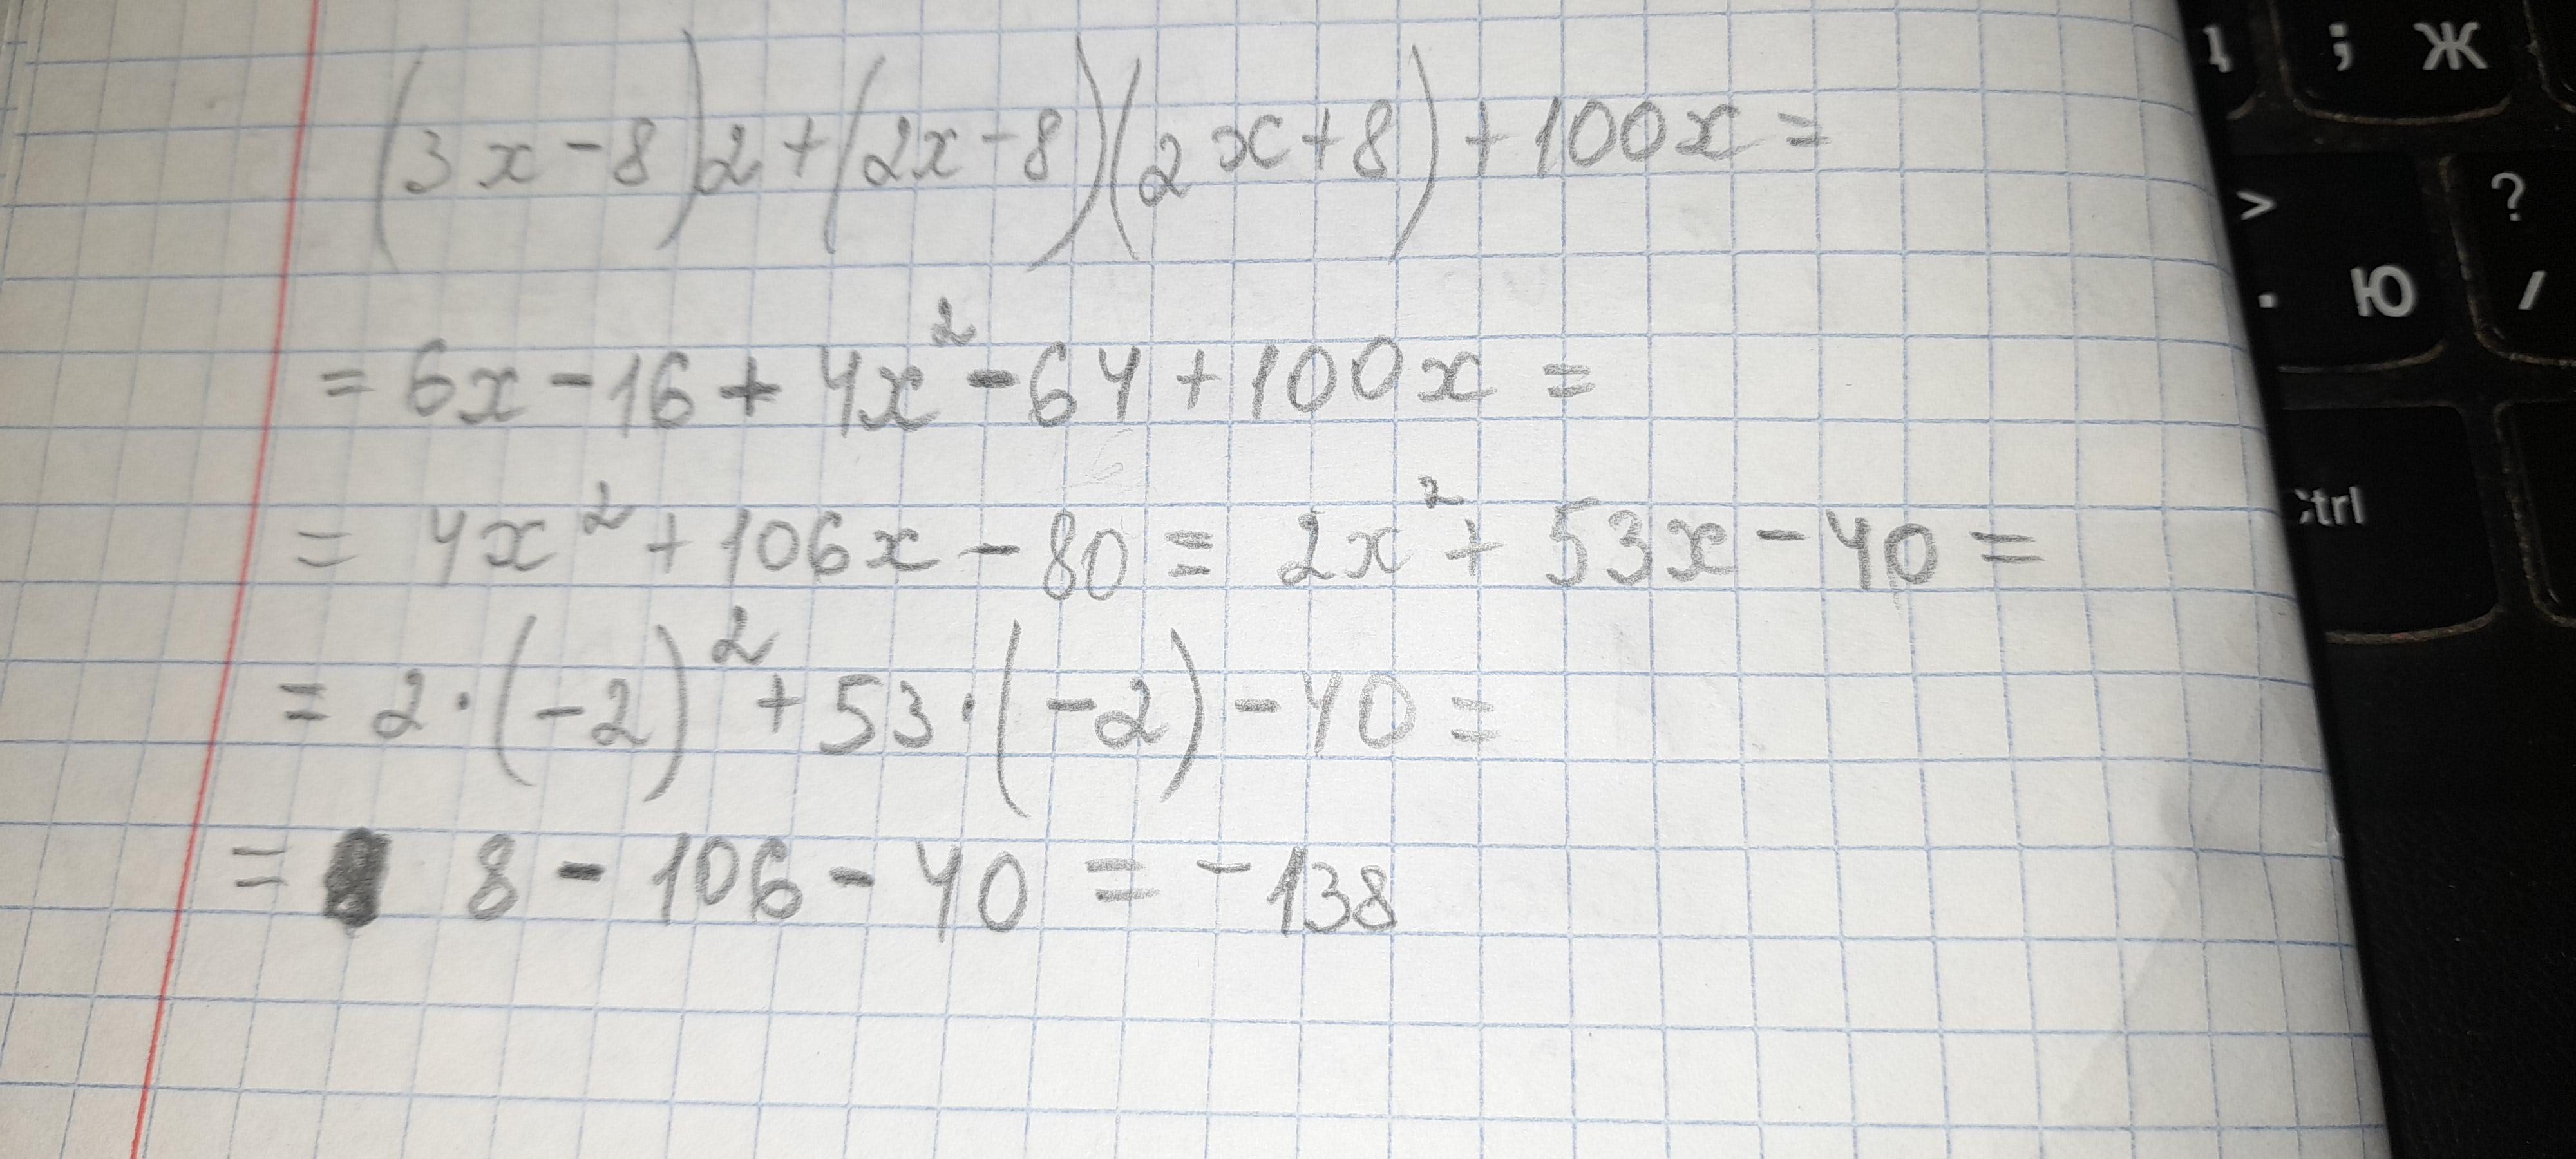 (3x-8)2+(2x-8)(2x+8)+100x=
=6x-16+4x²-64+100x=
=4x²+106x-80=2x²+53x-40=
=2·(-2)²+53·(-2)-40=
=8-106-40=-138
; Ж
> ?
. Ю /